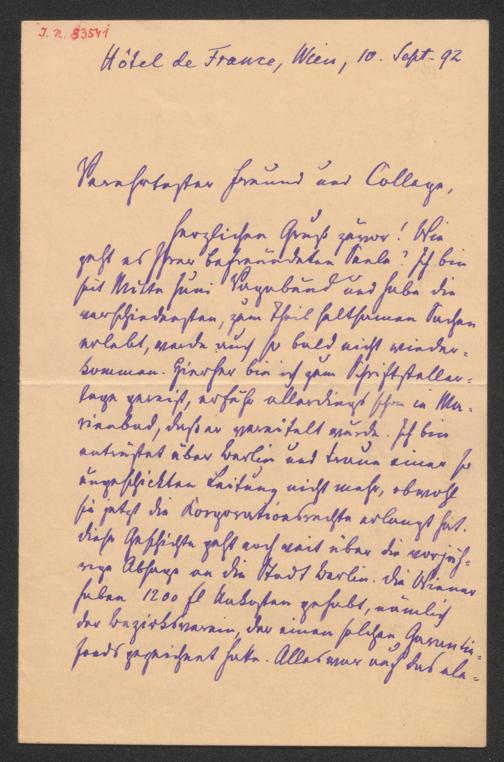 J. N. 83541
Hôtel de France, Wien, 10. Sept. 92
Verehrtester Freund und College,
Herzlichen Gruß zuvor! Wie
geht es Ihrer befreundeten Seele? Ich bin
seit Mitte Juni Vagabund und habe die
verschiedensten, zum Theil seltsamen Sachen
erlebt, werde auch so bald nicht wieder-
kommen. Hierher bin ich zum Schriftsteller-
tage gereist, erfuhr allerdings schon in Ma-
rienbad, daß er vereitelt wurde. Ich bin
entrüstet über Berlin und traue einer so
ungeschickten Leitung nicht mehr, obwohl
sie jetzt die Korporationsrechte erlangt hat.
Diese Geschichte geht noch weit über die vorjäh-
rige Absage an die Stadt Berlin. Die Wiener
haben 1200 fl Unkosten gehabt, nämlich
der Bezirksverein, der einen solchen Garantie-
fonds gezeichnet hatte. Alles war auf das ele-